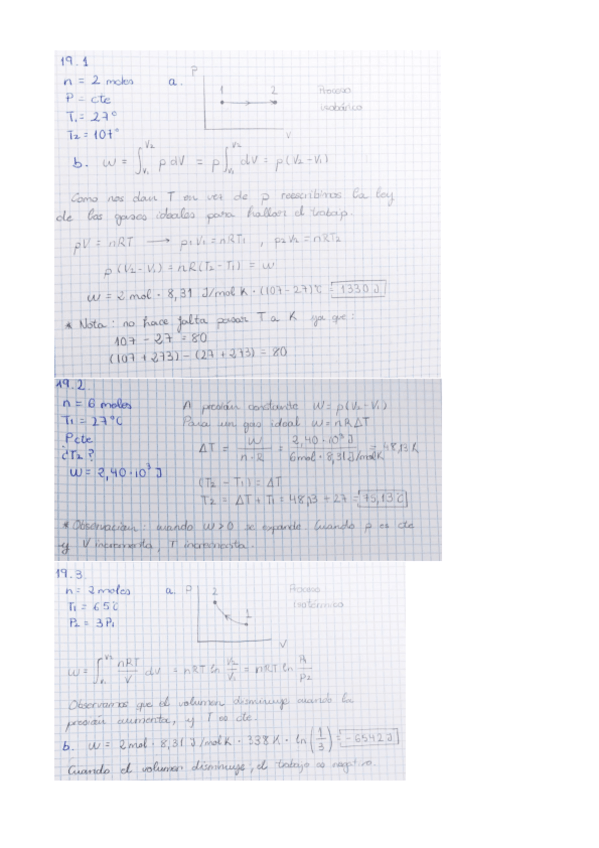 19.1
n = 2 moles
P = cte
T₁ = 27°
T₂ = 107°
a.
P
1 2
V
Proceso
isobárico
b. W = ∫V₁^V₂ p dV = p ∫V₁^V₂ dV = p(V₂ - V₁)
Como nos dan T en vez de p reescribimos la ley
de los gases ideales para hallar el trabajo.
pV = nRT → p₁V₁ = nRT₁ , p₂V₂ = nRT₂
p(V₂ - V₁) = nR(T₂ - T₁) = W
W = 2 mol · 8,31 J/mol K · (107 - 27)°C = 1330 J
* Nota: no hace falta pasar T a K ya que:
107 - 27 = 80
(107 + 273) - (27 + 273) = 80
19.2.
n = 6 moles
T₁ = 27°C
P cte
¿T₂?
W = 2,40·10³ J
A presión constante W = p(V₂ - V₁)
Para un gas ideal W = nRΔT
ΔT = W / n·R = 2,40·10³ J / 6 mol · 8,31 J/mol K = 48,13 K
(T₂ - T₁) = ΔT
T₂ = ΔT + T₁ = 48,13 + 27 = 75,13°C
* Observación: cuando W > 0 se expande. Cuando p es cte
y V incrementa, T incrementa.
19.3.
n = 2 moles
T₁ = 65°C
P₂ = 3P₁
a.
P
2
1
V
Proceso
isotérmico
W = ∫V₁^V₂ nRT/V dV = nRT ln V₂/V₁ = nRT ln P₁/P₂
Observamos que el volumen disminuye cuando la
presión aumenta, y T es cte.
b. W = 2 mol · 8,31 J/mol K · 338 K · ln (1/3) = -6542 J
Cuando el volumen disminuye, el trabajo es negativo.